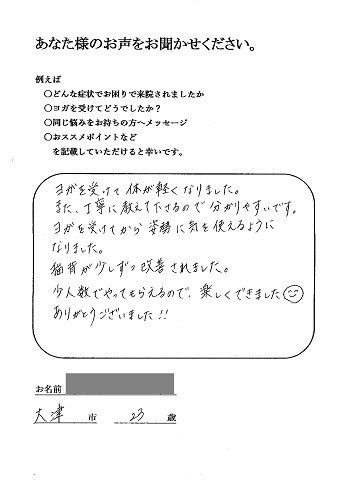 あなた様のお声をお聞かせください。
例えば
○どんな症状でお困りで来院されましたか
○ヨガを受けてどうでしたか？
○同じ悩みをお持ちの方へメッセージ
○おススメポイントなど
を記載していただけると幸いです。
ヨガを受けて体が軽くなりました。
また、丁寧に教えて下さるので分かりやすいです。
ヨガを受けてから姿勢に気を使えるように
なりました。
猫背が少しずつ改善されました。
少人数でやってもらえるので、楽しくできました
ありがとうございました!!
お名前
大津 市 23 歳